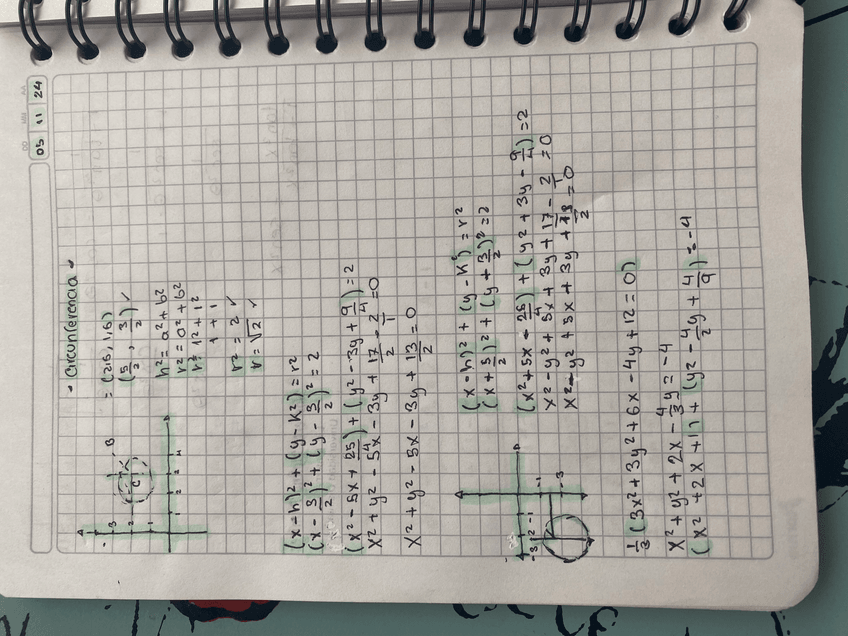 05 11 24
• Circunferencia •
= (2.5, 1.5)
(5/2, 3/2) ✓
h² = a² + b²
r² = a² + b²
r² = 1² + 1²
1 + 1
r² = 2 ✓
r = √2 ✓
(x - h)² + (y - k²) = r²
(x - 3/2)² + (y - 3/2)² = 2
(x² - 5x + 25/4) + (y² - 3y + 9/4) = 2
x² + y² - 5x - 3y + 17/2 - 2/1 = 0
x² + y² - 5x - 3y + 13/2 = 0
(x - h)² + (y - k²) = r²
(x + 5/2)² + (y + 3/2)² = 2
(x² + 5x + 25/4) + (y² + 3y - 9/4) = 2
x² - y² + 5x + 3y + 17/2 - 2/1 = 0
x² - y² + 5x + 3y + 13/2 = 0
1/3 (3x² + 3y² + 6x - 4y + 12 = 0)
x² + y² + 2x - 4/3 y = -4
(x² + 2x + 1) + (y² - 4/2 y + 4/9) = -4